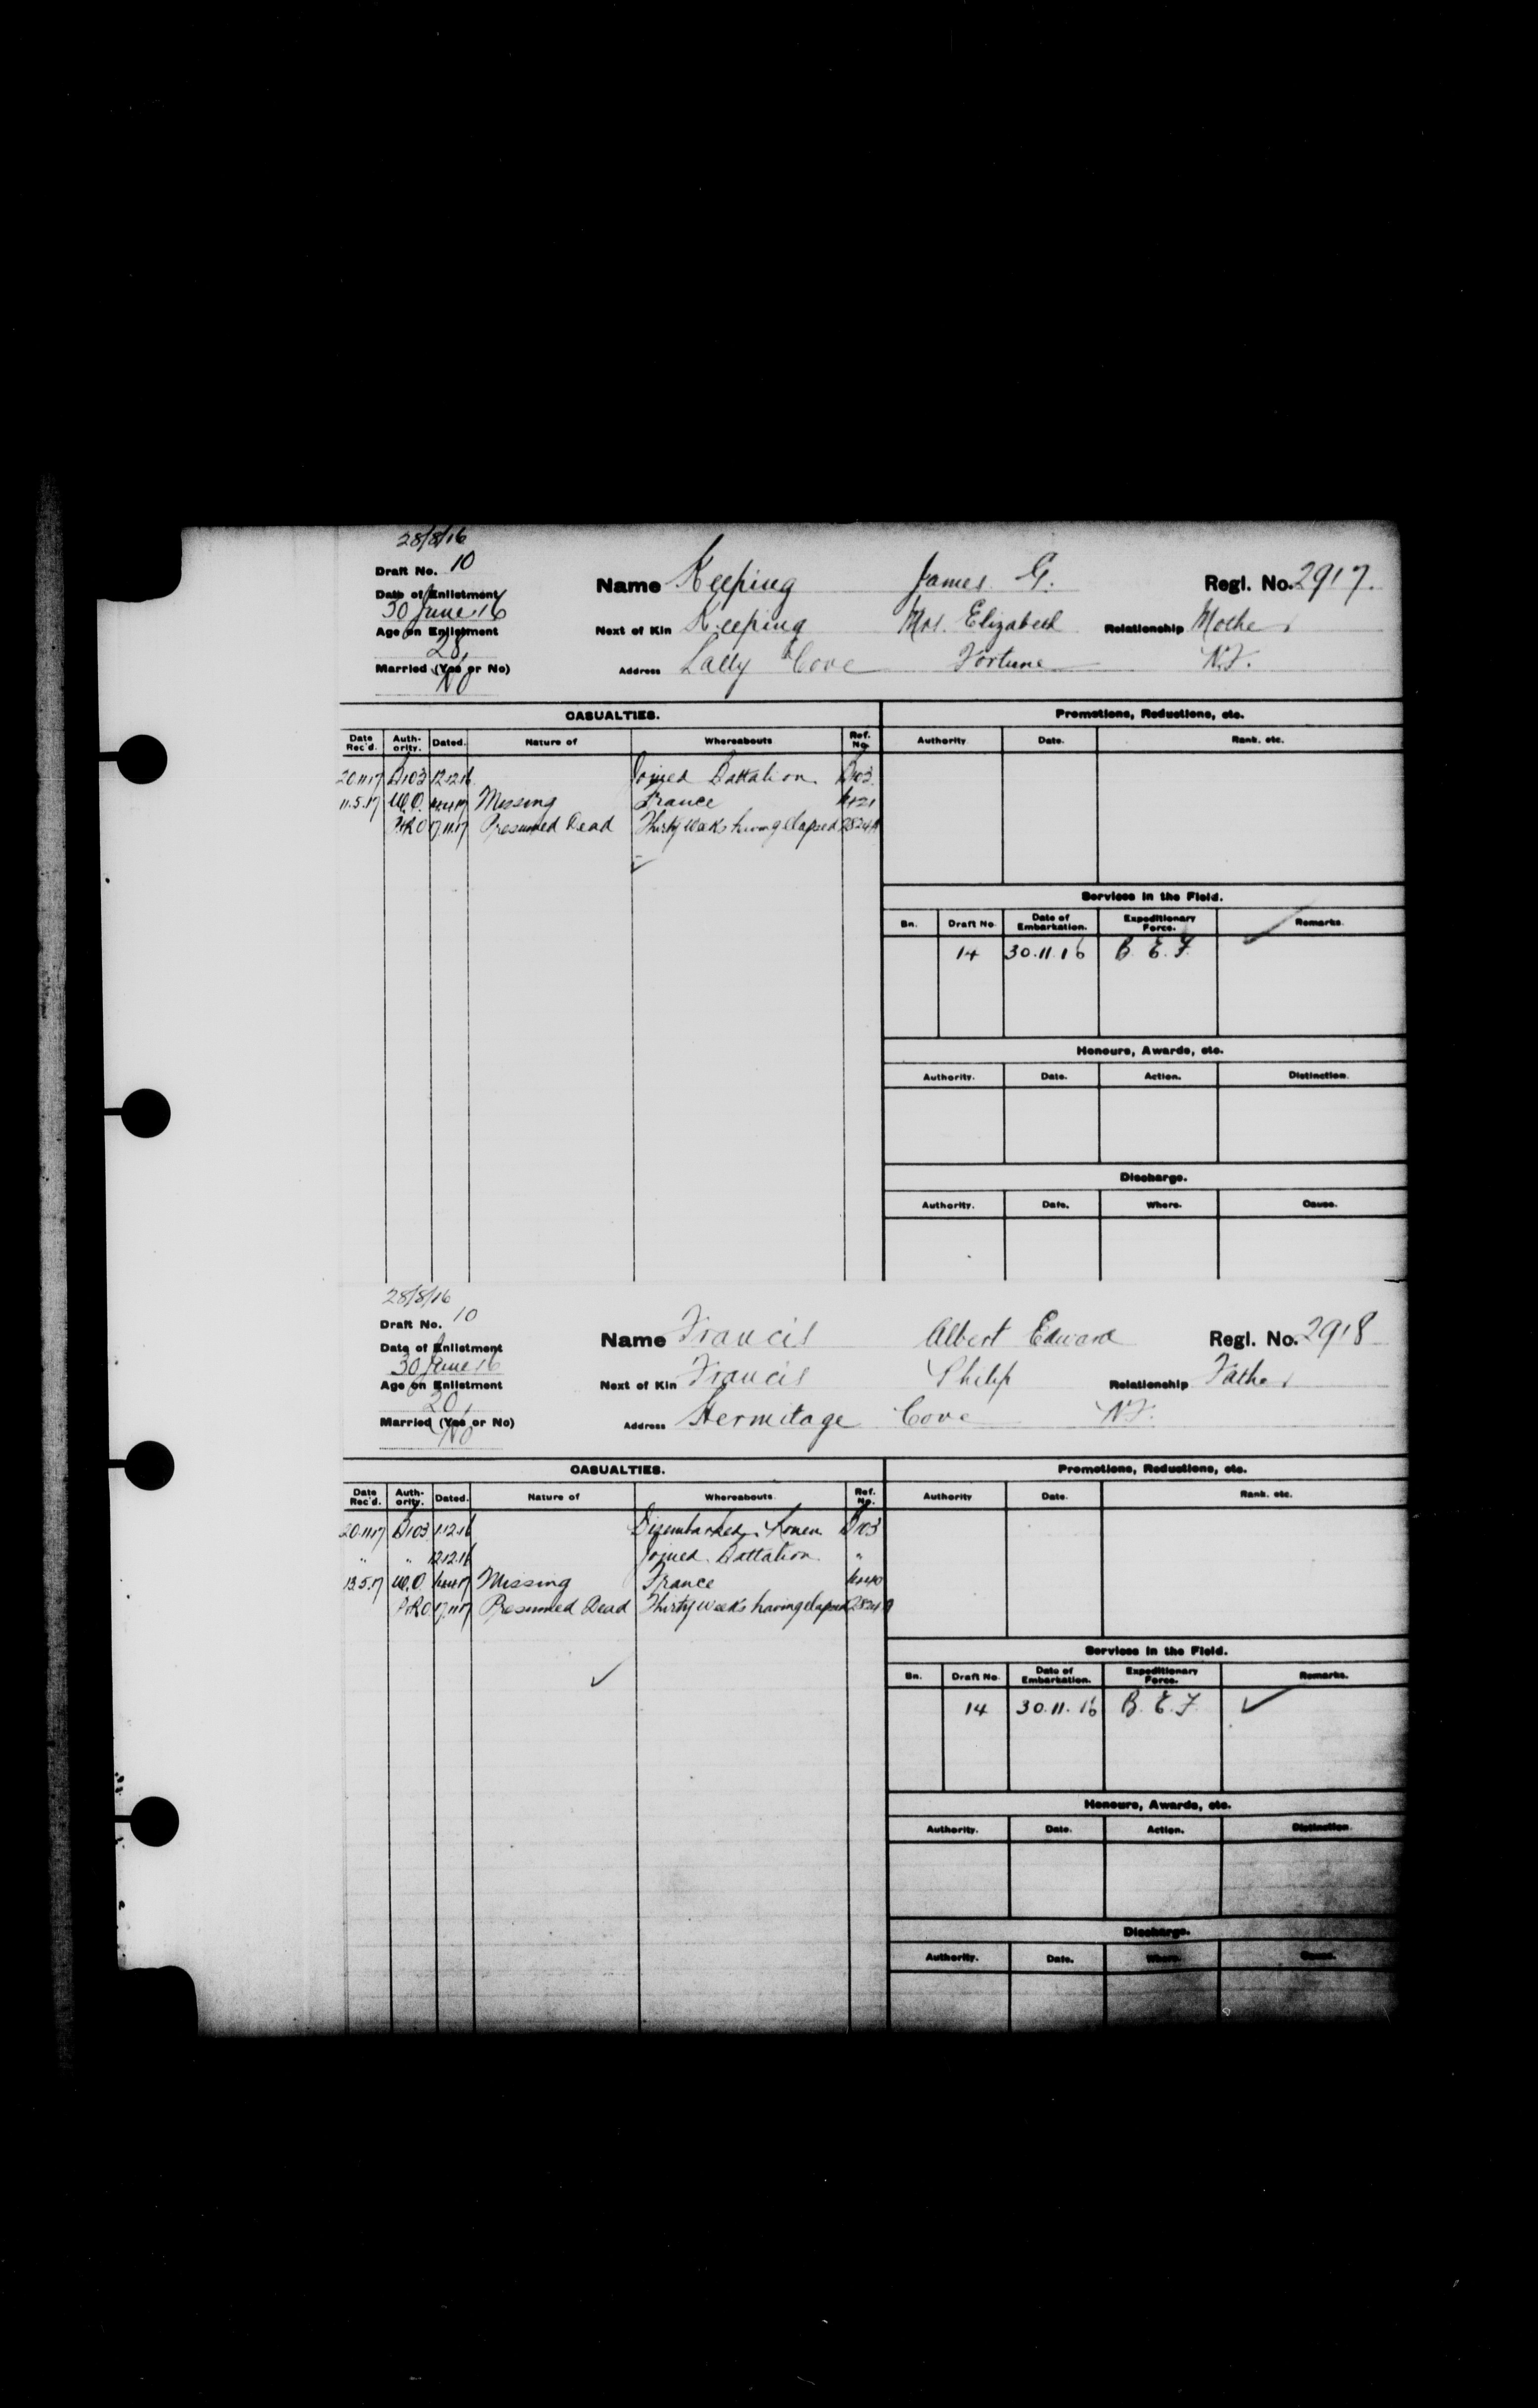 28/8/16
Draft No. 10
Date of Enlistment
30 June 16
Age on Enlistment
28
Married (Yes or No)
No
Name Keeping James G. Regl. No. 2917.
Next of Kin Keeping Mrs. Elizabeth Relationship Mother
Address Lally Cove Fortune N.F.
CASUALTIES. Promotions, Reductions, etc.
Date Rec'd. Authority. Dated. Nature of Whereabouts Ref. No. Authority Date. Rank. etc.
20.11.17 B103 12.12.16 Joined Battalion B103.
11.5.17 W.O. Missing France
17.11.17 Presumed Dead Thirty weeks having elapsed
Services in the Field.
Bn. Draft No. Date of Embarkation. Expeditionary Force. Remarks.
14 30.11.16 B.E.F.
Honours, Awards, etc.
Authority. Date. Action. Distinction.
Discharge.
Authority. Date. Where. Cause.
28/8/16
Draft No. 10
Date of Enlistment
30 June 16
Age on Enlistment
20
Married (Yes or No)
No
Name Francis Albert Edward Regl. No. 2918
Next of Kin Francis Philip Relationship Father
Address Hermitage Cove N.F.
CASUALTIES. Promotions, Reductions, etc.
Date Rec'd. Authority. Dated. Nature of Whereabouts. Ref. No. Authority Date. Rank. etc.
20.11.17 B103 1.12.16 Disembarked Rouen B103
" " 12.12.16 Joined Battalion "
13.5.17 W.O Missing France
17.11.17 Presumed Dead Thirty weeks having elapsed
Services in the Field.
Bn. Draft No. Date of Embarkation. Expeditionary Force. Remarks.
14 30.11.16 B.E.F.
Honours, Awards, etc.
Authority. Date. Action. Distinction.
Discharge.
Authority. Date. Where. Cause.